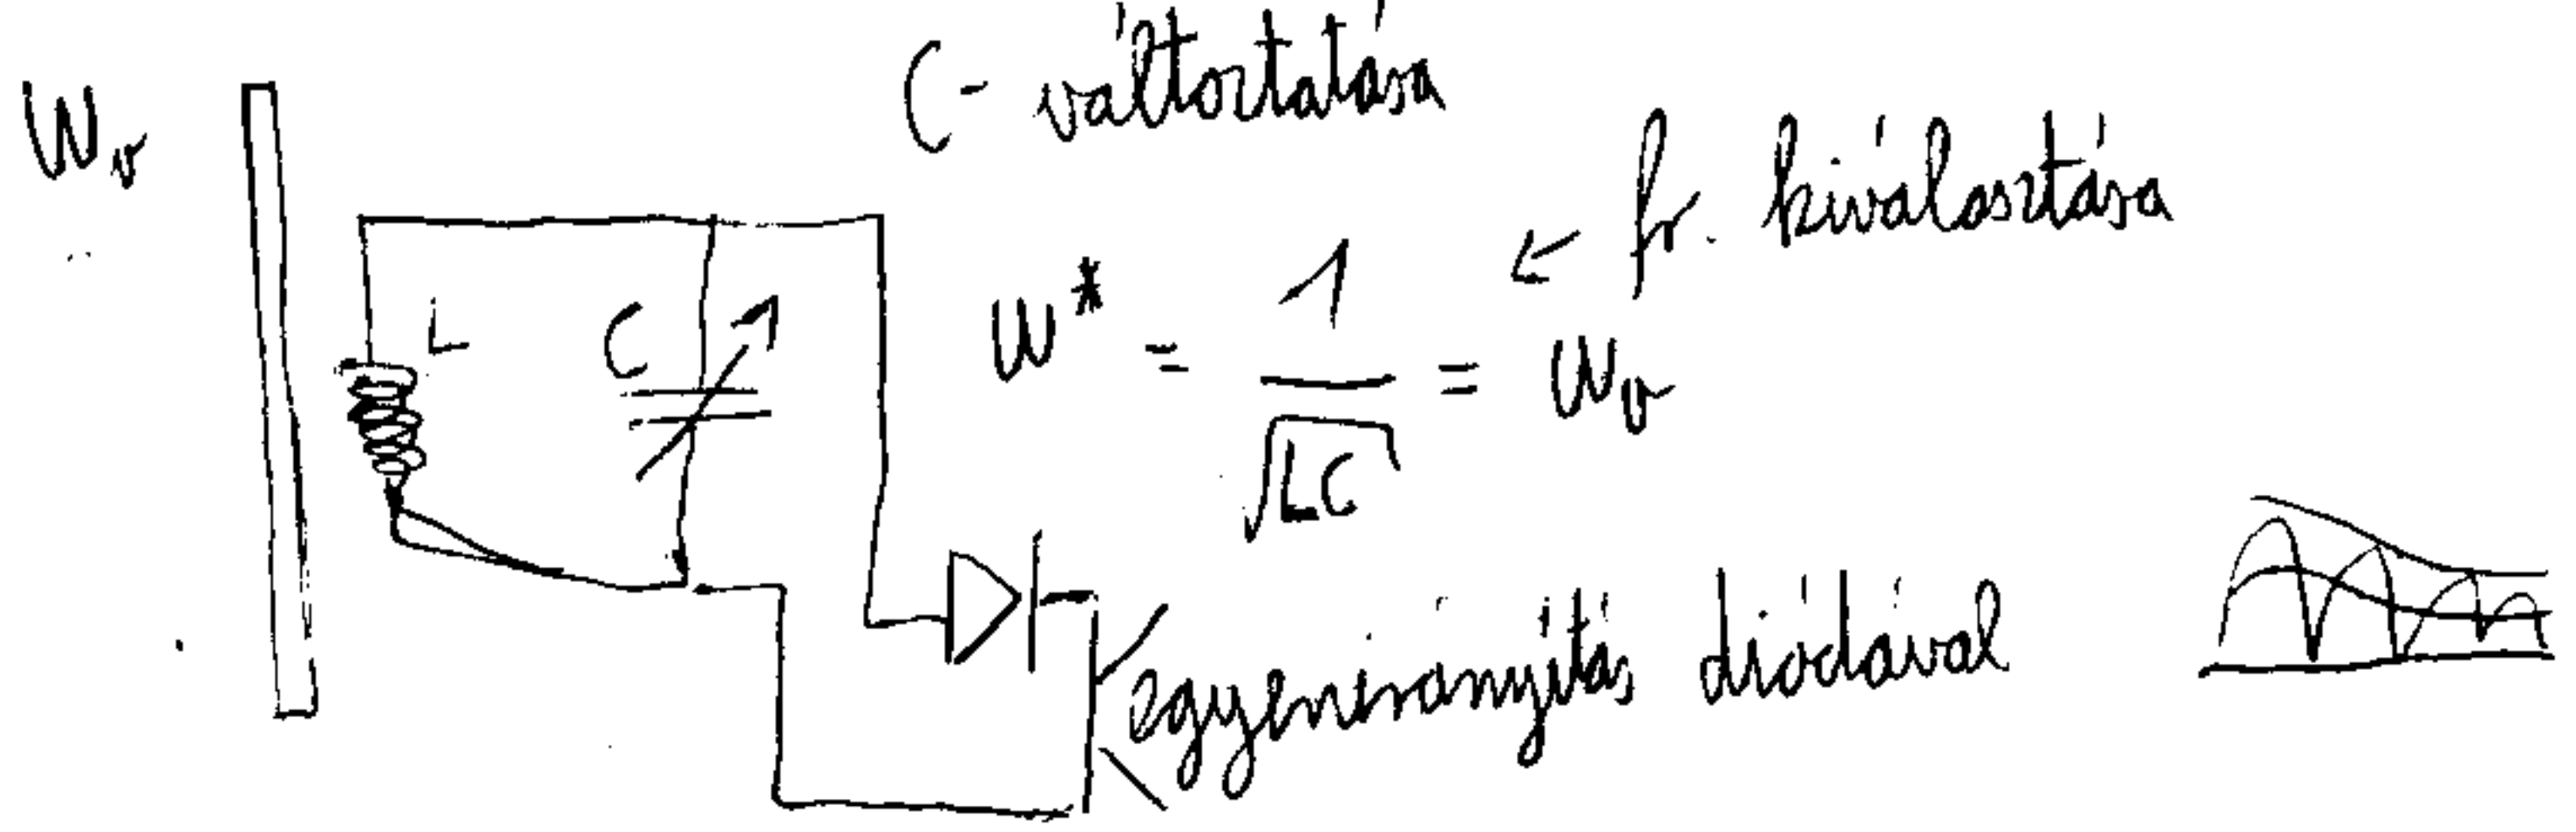 C - változtatása
ω_v
← fr. kiválasztása
L
C
ω* = 1/√LC = ω_v
egyenirányítás diódával